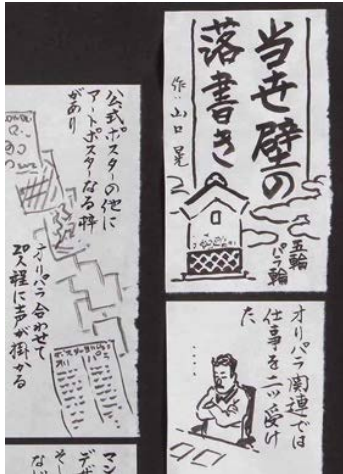 当世壁の
落書き
作:山口 晃
五輪
パラ輪
オリパラ関連では
仕事を二ッ受け
た
公式ポスターの他に
アートポスターなる枠
があり
オリパラ合わせて
20人程に声が掛かる
マン
デザ
そし
な